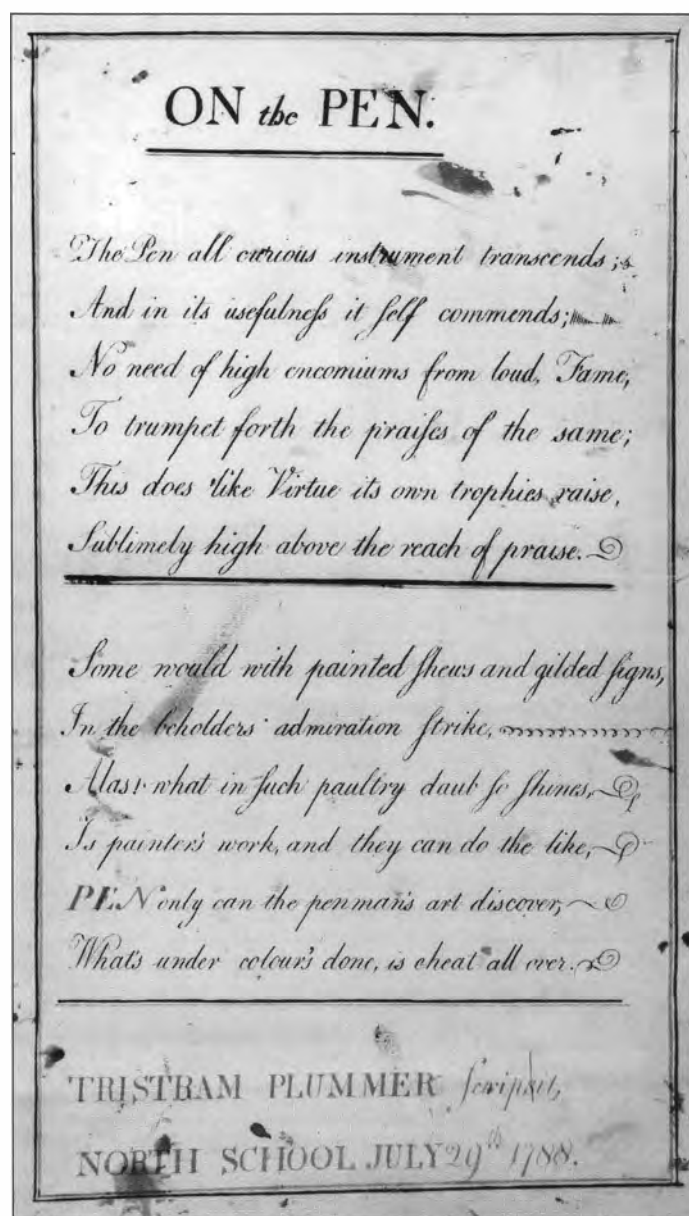 ON the PEN.
The Pen all curious instrument transcends;
And in its usefulneſs it ſelf commends;
No need of high encomiums from loud, Fame,
To trumpet forth the praiſes of the same;
This does like Virtue its own trophies raise,
Sublimely high above the reach of praise.
Some would with painted ſhews and gilded ſigns,
In the beholders admiration ſtrike,
Alas! what in ſuch paultry daub ſo ſhines,
Is painter's work, and they can do the like,
PEN only can the penman's art discover,
What's under colour's done, is cheat all over.
TRISTRAM PLUMMER ſcripsit,
NORTH SCHOOL JULY 29th 1788.